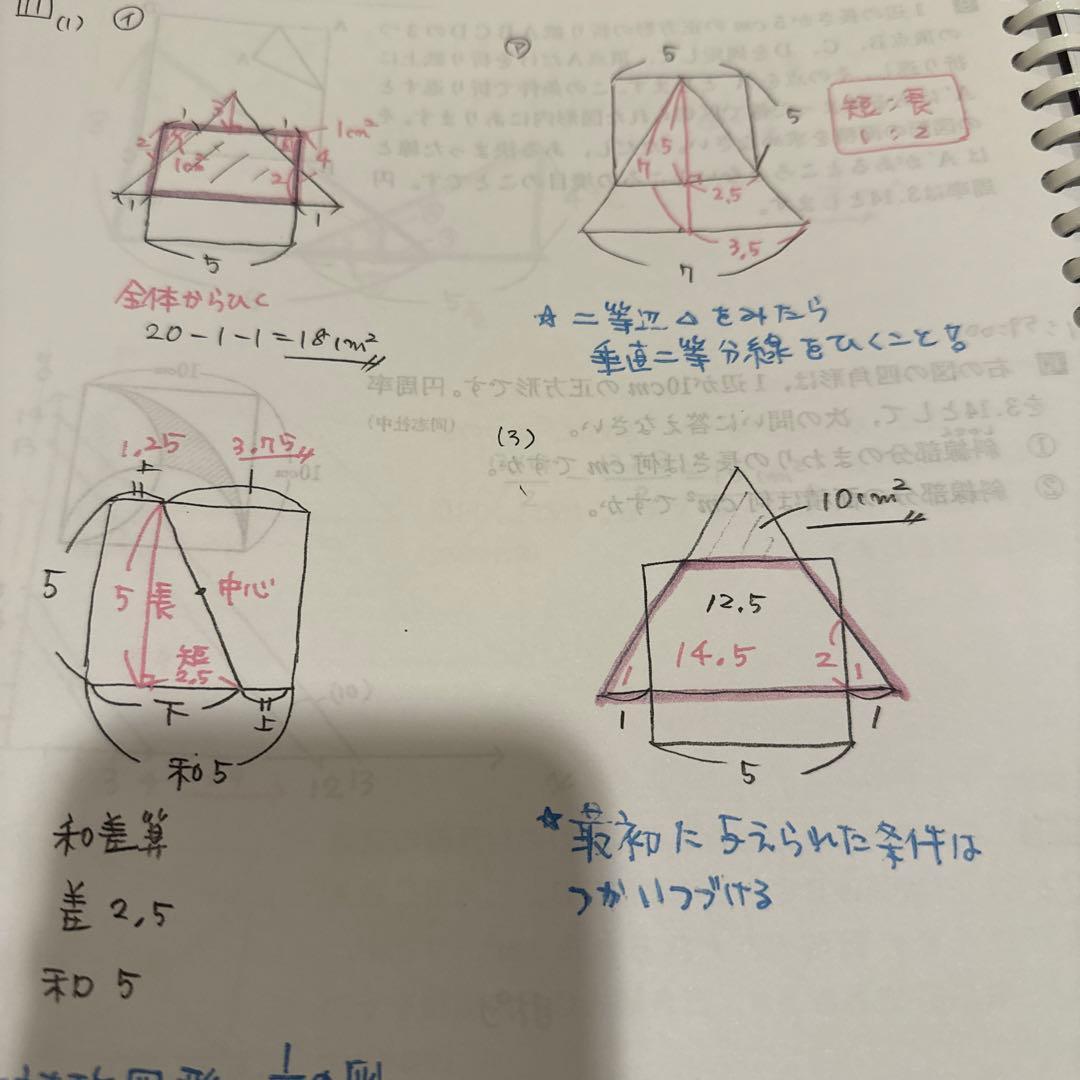 (1) ㋑
3
1
1
1cm²
2
1cm²
4
2
1
1
5
全体からひく
20-1-1=18cm²
㋐
5
5
5
7
2.5
3.5
7
短:長
1:2
☆ 二等辺△をみたら
垂直二等分線をひくこと
1.25
3.75
上
5
5
長
中心
短
2.5
下
上
和5
和差算
差 2.5
和 5
(3)
10cm²
12.5
14.5
1
2
1
1
1
5
☆ 最初に与えられた条件は
つかいつづける